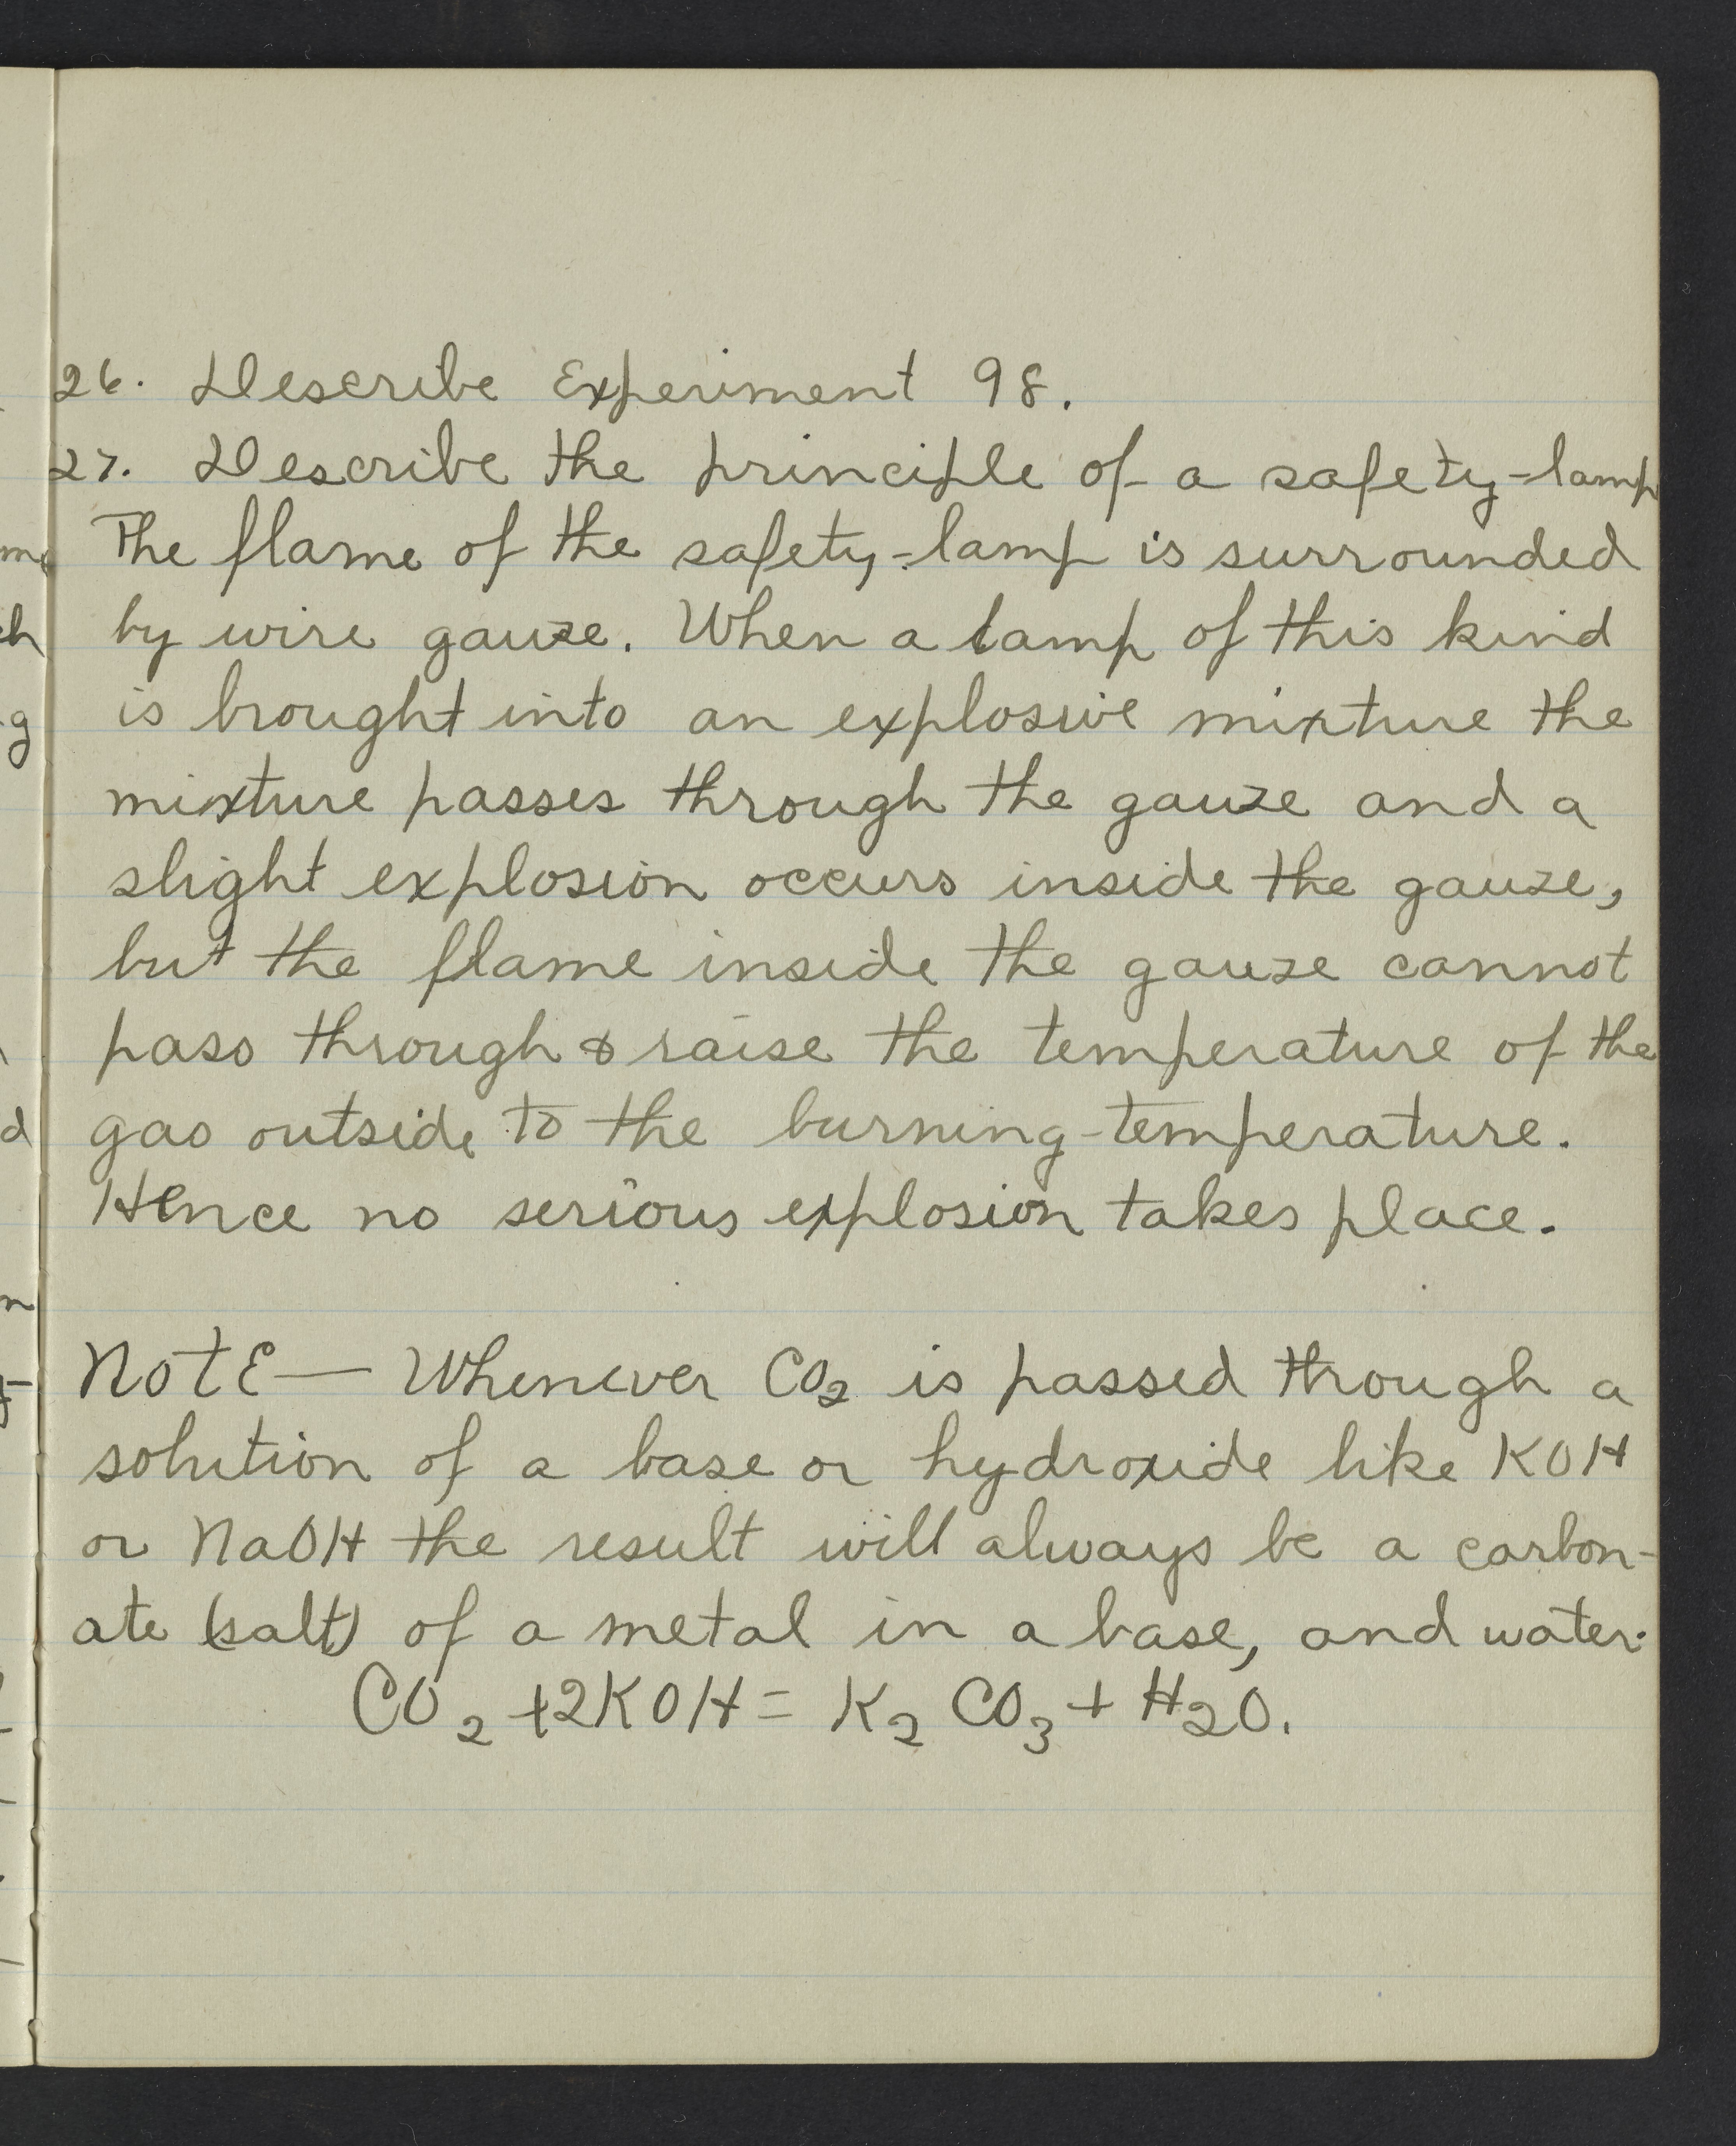 26. Describe Experiment 98.
27. Describe the principle of a safety-lamp
The flame of the safety-lamp is surrounded
by wire gauze. When a lamp of this kind
is brought into an explosive mixture the
mixture passes through the gauze and a
slight explosion occurs inside the gauze,
but the flame inside the gauze cannot
pass through & raise the temperature of the
gas outside to the burning-temperature.
Hence no serious explosion takes place.
NOTE — Whenever CO₂ is passed through a
solution of a base or hydroxide like KOH
or NaOH the result will always be a carbon-
ate (salt) of a metal in a base, and water:
CO₂ + 2KOH = K₂CO₃ + H₂O.